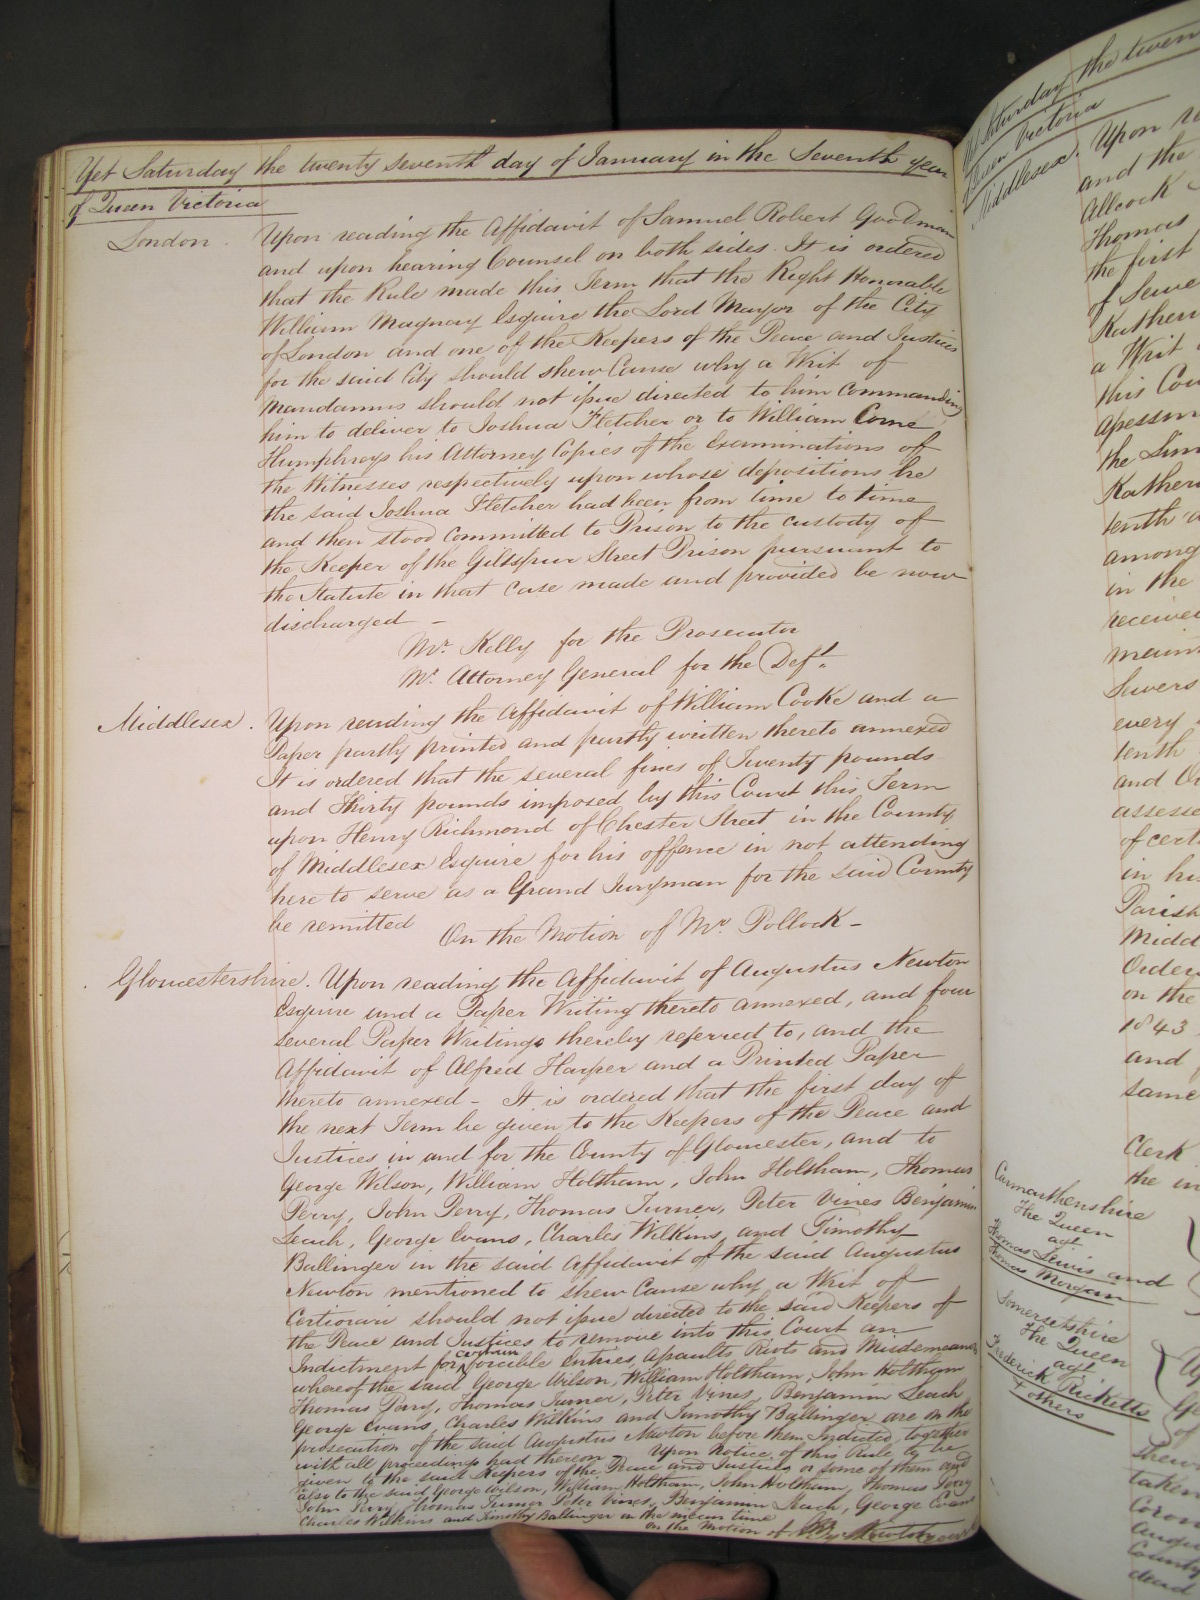 Yet Saturday the twenty seventh day of January in the Seventh year
of Queen Victoria
London. Upon reading the Affidavit of Samuel Robert Goodman
and upon hearing Counsel on both sides. It is ordered
that the Rule made this Term that the Right Honorable
William Magnay Esquire the Lord Mayor of the City
of London and one of the Keepers of the Peace and Justices
for the said City should shew Cause why a Writ of
Mandamus should not issue directed to him commanding
him to deliver to Joshua Fletcher or to William Corne
Humphreys his Attorney Copies of the Examinations of
the Witnesses respectively upon whose depositions he
the said Joshua Fletcher had been from time to time
and then stood committed to Prison to the custody of
the Keeper of the Giltspur Street Prison pursuant to
the Statute in that case made and provided be now
discharged –
Mr. Kelly for the Prosecutor
Mr. Attorney General for the Deft.
Middlesex. Upon reading the Affidavit of William Cooke and a
Paper partly printed and partly written thereto annexed
It is ordered that the several fines of Twenty pounds
and Thirty pounds imposed by this Court this Term
upon Henry Richmond of Chester Street in the County
of Middlesex Esquire for his offence in not attending
here to serve as a Grand Juryman for the said County
be remitted
On the Motion of Mr. Pollock –
Gloucestershire. Upon reading the Affidavit of Augustus Newton
Esquire and a Paper Writing thereto annexed, and four
several Paper Writings thereby referred to, and the
Affidavit of Alfred Harper and a Printed Paper
thereto annexed – It is ordered that the first day of
the next Term be given to the Keepers of the Peace and
Justices in and for the County of Gloucester, and to
George Wilson, William Holtham, John Holtham, Thomas
Perry, John Perry, Thomas Turner, Peter Vines Benjamin
Leach, George Evans, Charles Wilkins and Timothy
Ballinger in the said Affidavit of the said Augustus
Newton mentioned to shew Cause why a Writ of
Certiorari should not issue directed to the said Keepers of
the Peace and Justices to remove into this Court an
Indictment for certain forcible Entries, Assaults Riots and Misdemeanors
whereof the said George Wilson, William Holtham, John Holtham
Thomas Perry, Thomas Turner, Peter Vines, Benjamin Leach
George Evans, Charles Wilkins and Timothy Ballinger are on the
prosecution of the said Augustus Newton before them Indicted, together
with all proceedings had thereon Upon Notice of this Rule to be
given to the said Keepers of the Peace and Justices or some of them and
also to the said George Wilson, William Holtham, John Holtham, Thomas Perry
John Perry, Thomas Turner Peter Vines, Benjamin Leach, George Evans
Charles Wilkins and Timothy Ballinger in the mean time
On the Motion of
Saturday the twen
Queen Victoria
Middlesex. Upon
and the
Allcock
Thomas
the first
of Sewe
Kathern
a Writ
this Cou
assessm
the
Kather
tenth
among
in the
received
main
Sewers
every
tenth
and
assesse
of cert
in his
Parish
Midd
Order
on the
1843
and
same
Clerk
the in
Carmarthenshire
The Queen
agt
Thomas Lewis and
Thomas Morgan
Somersetshire
The Queen
agt
Frederick Ricketts
& others
shew
taken
Coron
Augu
County
dead